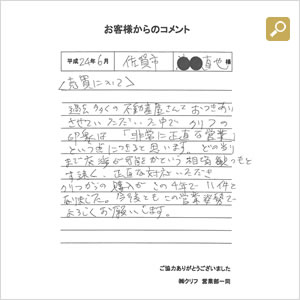 お客様からのコメント
平成24年6月 佐賀市 ●●直也様
〈売買について〉
過去多くの不動産屋さんとおつきあい
させていただいた中でクリフの
印象は「非常に正直な営業」
というにつきると思います。どのあ
まで交渉が可能かという相場観も
素早く、正直な対応いただき
クリフからの購入がこの4年で11件と
なりました。今後ともこの営業姿勢で
よろしくお願いします。
ご協力ありがとうございました
㈱クリフ 営業部一同